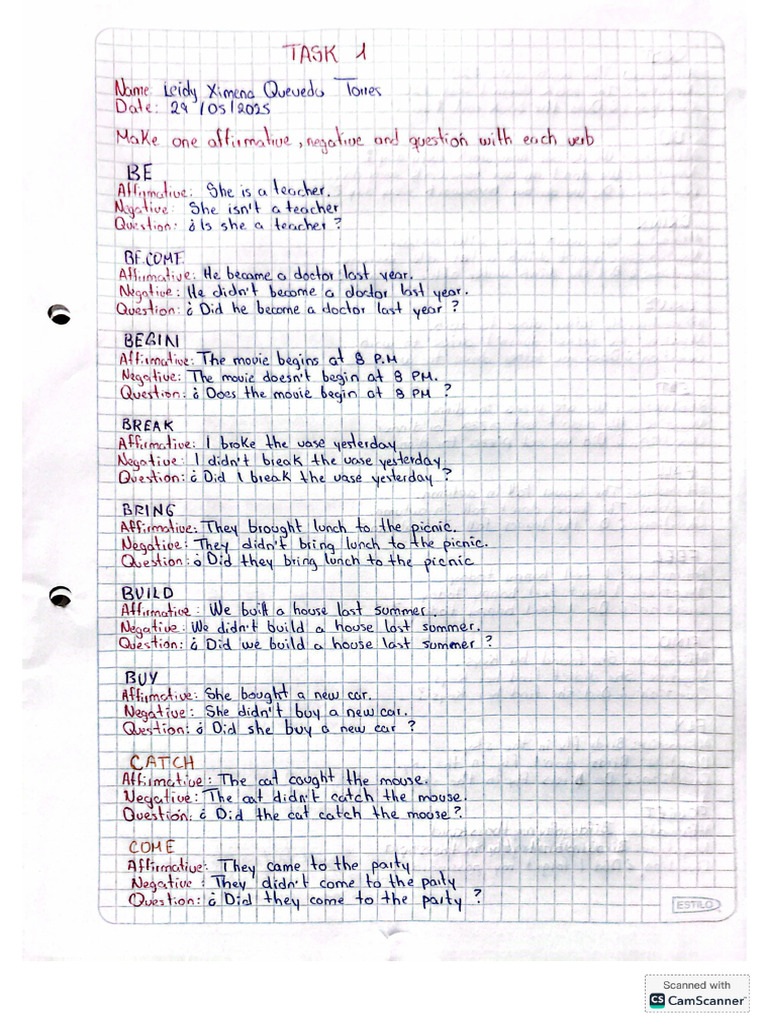 TASK 1
Name: Leidy Ximena Quevedo Torres
Date: 29/05/2025
Make one affirmative, negative and question with each verb
BE
Affirmative: She is a teacher.
Negative: She isn't a teacher
Question: ¿Is she a teacher?
BECOME
Affirmative: He became a doctor last year.
Negative: He didn't become a doctor last year.
Question: ¿Did he become a doctor last year?
BEGIN
Affirmative: The movie begins at 8 P.M
Negative: The movie doesn't begin at 8 PM.
Question: ¿Does the movie begin at 8 PM?
BREAK
Affirmative: I broke the vase yesterday
Negative: I didn't break the vase yesterday
Question: ¿Did I break the vase yesterday?
BRING
Affirmative: They brought lunch to the picnic.
Negative: They didn't bring lunch to the picnic.
Question: ¿Did they bring lunch to the picnic
BUILD
Affirmative: We built a house last summer.
Negative: We didn't build a house last summer.
Question: ¿Did we build a house last summer?
BUY
Affirmative: She bought a new car.
Negative: She didn't buy a new car.
Question: ¿Did she buy a new car?
CATCH
Affirmative: The cat caught the mouse.
Negative: The cat didn't catch the mouse.
Question: ¿Did the cat catch the mouse?
COME
Affirmative: They came to the party
Negative: They didn't come to the party
Question: ¿Did they come to the party?
ESTILO
Scanned with
CS CamScanner